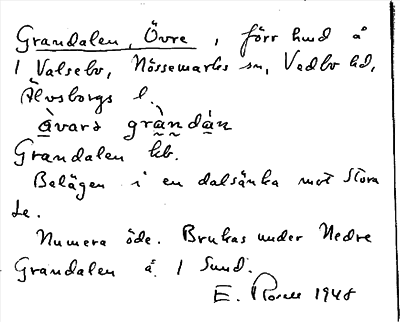 Grandalen, Övre, förr hmd å
1 Valsebo, Nössemarks sn, Vedbo hd,
Älvsborgs l.
åvarə gràndán
Grandalen kb.
Belägen i en dalsänka mot Stora
Le.
Numera öde. Brukas under Nedre
Grandalen å 1 Sund.
E. Rosell 1948